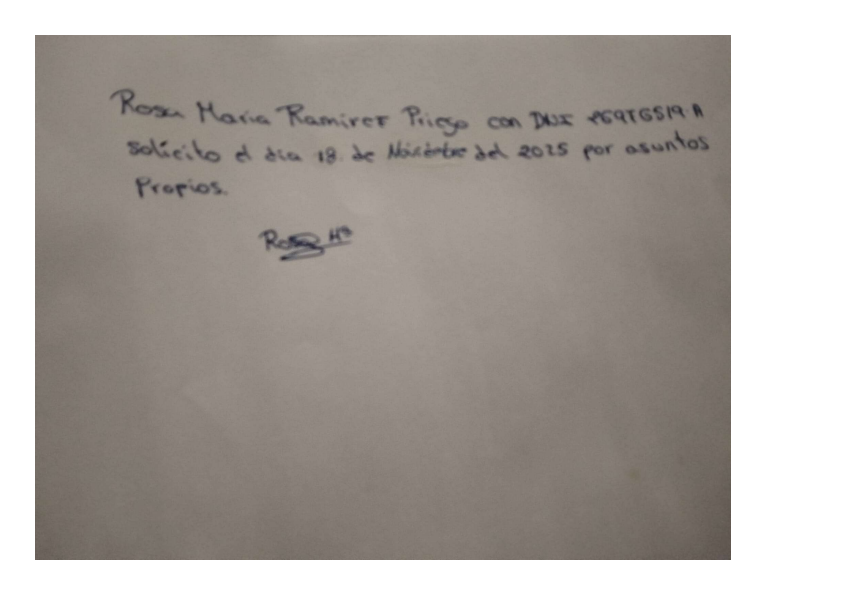 Rosa Maria Ramirez Priego con DNI
solicito el dia 18 de Noviembre del 2025 por asuntos
Propios.
Rosa Mª